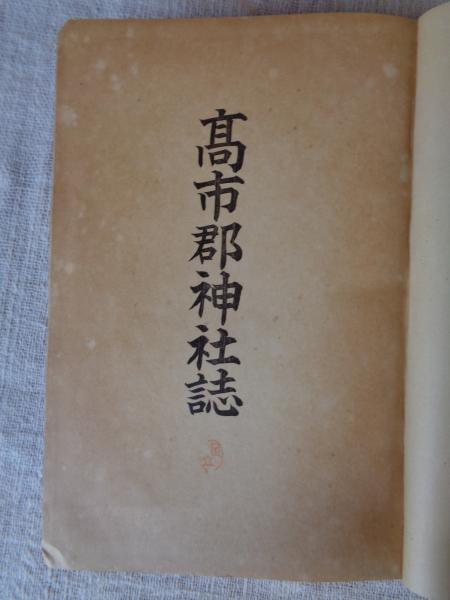 髙市郡神社誌